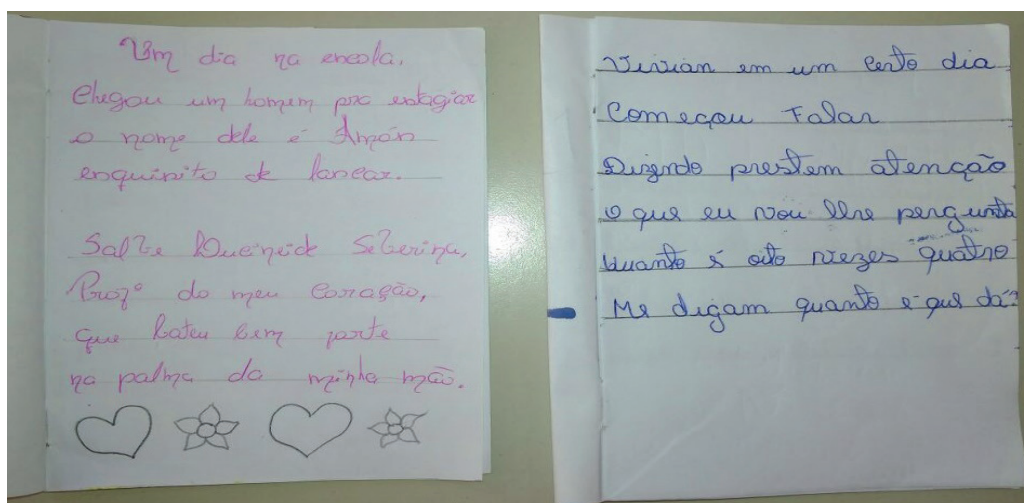 Um dia na escola,
Chegou um homem pra estagiar
o nome dele é
esquisito de lascar.
Salve Lucineide Severina,
Profª do meu coração,
que bateu bem forte
na palma da minha mão.
Vivian em um certo dia
Começou Falar
Dizendo prestem atenção
O que eu vou lhe pergunta
Quanto é oito viezes quatro
Me digam quanto é que dá?